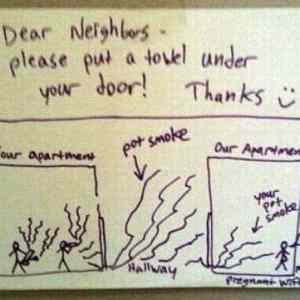 Dear Neighbors -
please put a towel under
your door! Thanks
Your apartment
pot smoke
Our Apartment
your
pot
smoke
Hallway
pregnant wife